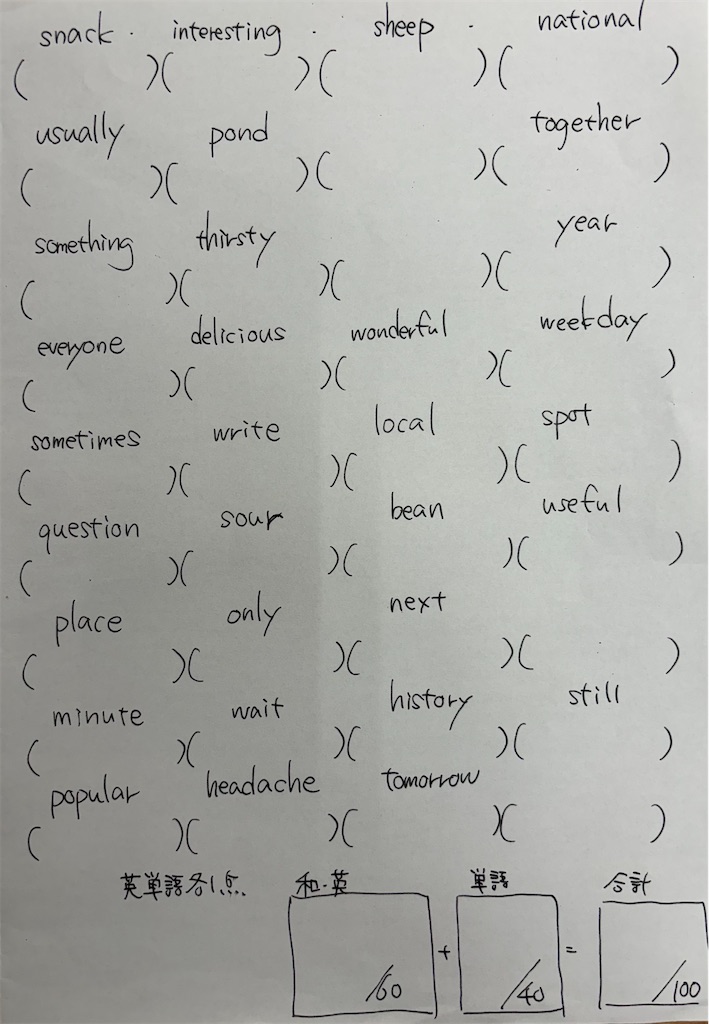 snack · interesting · sheep · national
( )( )( )( )
usually pond together
( )( )( )( )
something thirsty year
( )( )( )( )
everyone delicious wonderful weekday
( )( )( )( )
sometimes write local spot
( )( )( )( )
question sour bean useful
( )( )( )( )
place only next
( )( )( )( )
minute wait history still
( )( )( )( )
popular headache tomorrow
( )( )( )( )
英単語各1点 和・英 単語 合計
/60 + /40 = /100